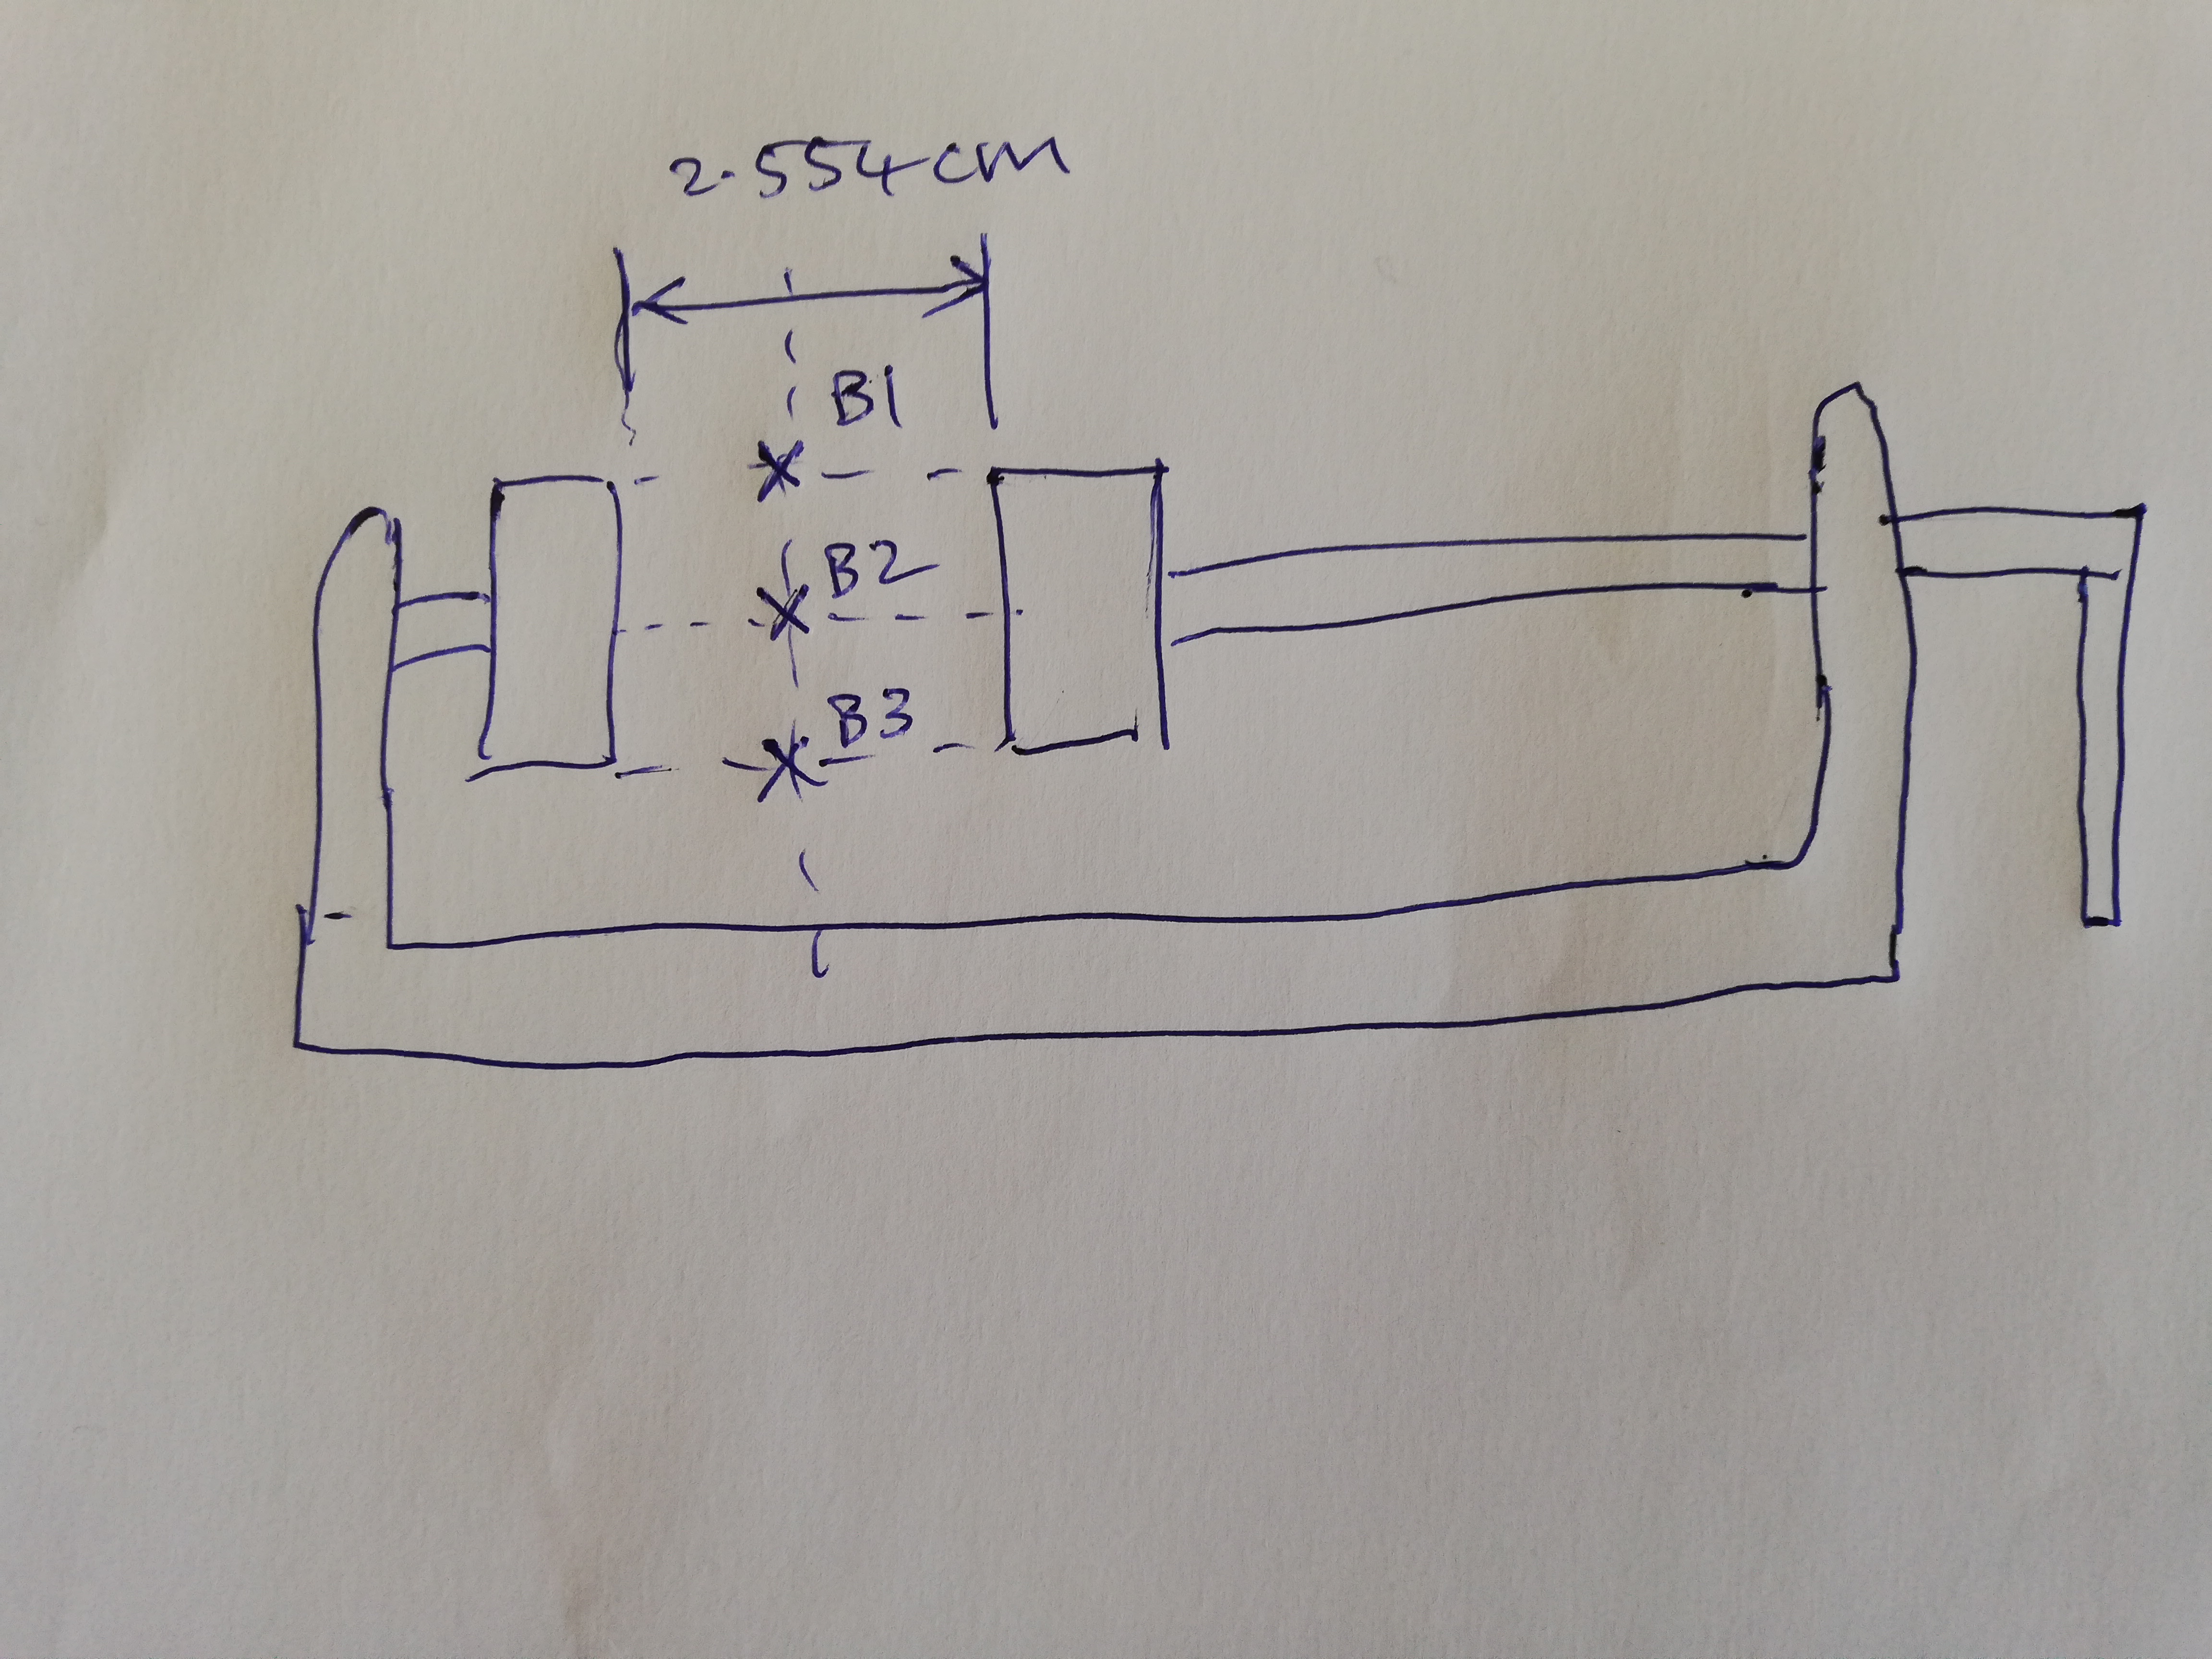 2.554cm
B1
B2
B3